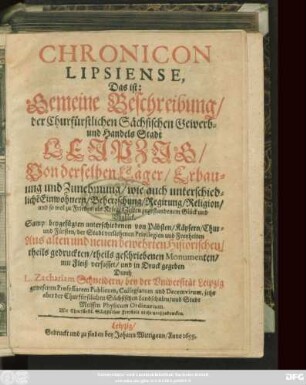 CHRONICON
LIPSIENSE,
Das ist:
Gemeine Beschreibung/
der Churfürstlichen Sächsischen Gewerb-
und Handels Stadt
LEIPZIG/
Von derselben Lager/ Erbau-
ung und Zunehmung/ wie auch unterschied-
liche Einwohnern/ Beherrschung/ Regirung/ Religion/
und so wol zu Friedens als Kriegs Zeiten zugestandenem Glück und
Samt beygefügten unterschiedenen von Päbsten/ Käysern/ Chur-
und Fürsten/ der Stadt verliehenen Privilegien und Freyheiten
Aus alten und neuen bewehrten Historischen/
theils gedruckten/ theils geschriebenen Monumenten/
mit Fleiß verfasset/ und in Druck gegeben
Durch
L. Zachariam Schneidern/ bey der Universität Leipzig
gewesenen Professorem Publicum, Collegiatum und Decemvirum, jetzo
aber der Churfürstlichen Sächsischen Landschulen/ und Stadt
Meissen Physicum Ordinarium.
Mit Churfürstl. Sächsischer Freyheit nicht nachzudrucken.
Leipzig/
Gedruckt und zu finden bey Johann Wittigaun/ Anno 1655.